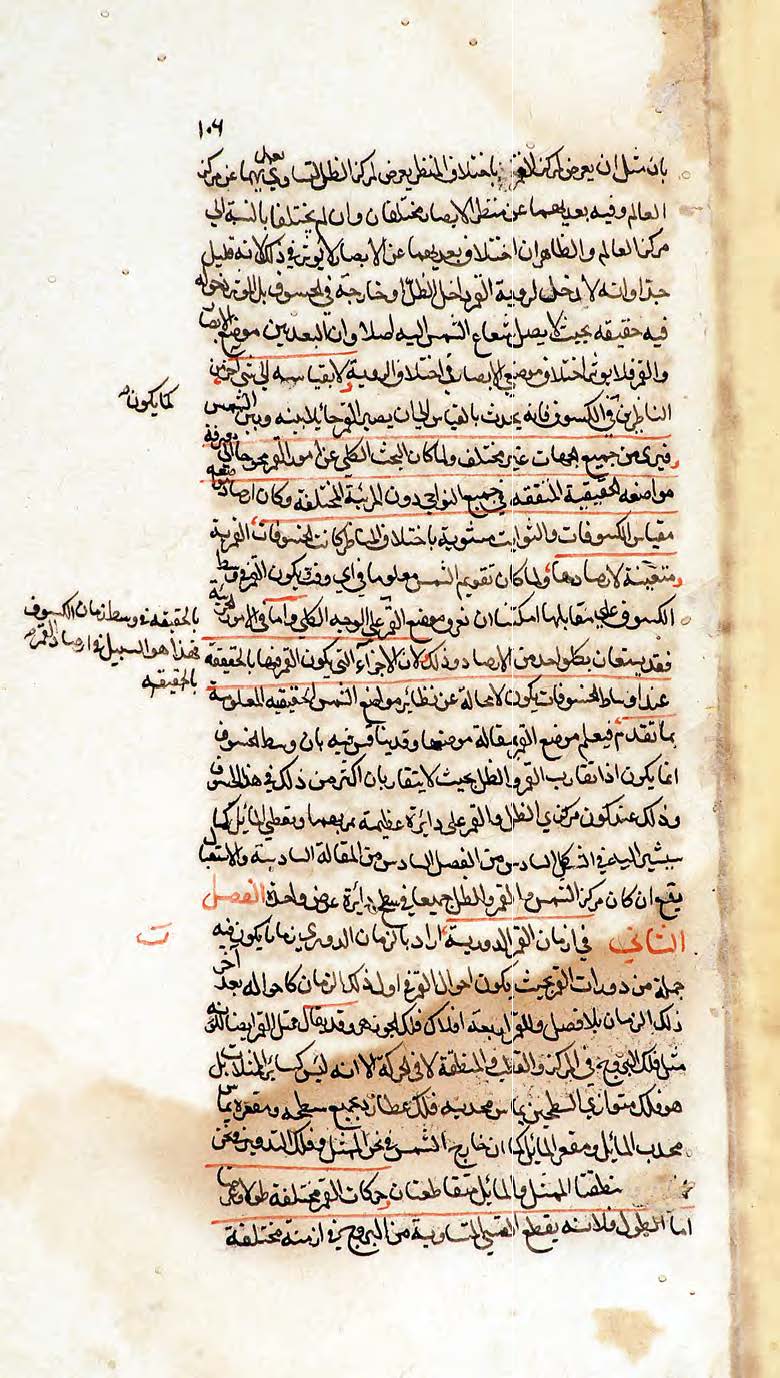 ١٠٦
بان مثل ان يعرض لمركز القمر باختلاف المنظر يعرض لمركز الظل لتساوي بعديهما عن مركز
العالم وفيه بعديهما عن منظر الابصار مختلفان وان لم يختلفا بالنسبة الى
مركز العالم والظاهر ان اختلاف بعديهما عن الابصار لا يوثر في ذلك لانه قليل
جدا وانه لا مدخل لروية القمر داخل الظل او خارجه في الخسوف بل الموثر دخوله
فيه حقيقه بحيث لا يصل شعاع الشمس اليه اصلا وان البعد بين موضع الابصار
والقمر فلا يوثر اختلاف موضعي الابصار في اختلاف الروية لا بقياسه الى شي اخر من
الناظرين في الكسوف فانه يحدث بالقياس الى ان يصير القمر حائلا بينه وبين الشمس
فيرى من جميع الجهات غير مختلف ولما كان البحث الكلي عن امور القمر محوجا الى معرفة
مواضعه الحقيقية المتفقه في جميع النواحي دون المرئية المختلفة وكان ارصاد مواضعه
مقياس الكسوفات والثوابت مشوبة باختلاف المناظر كانت الخسوفات القمرية
متعينة لارصادها ولما كان تقويم الشمس معلوما في اي وقت يكون القمر في وسط
الكسوف على مقابلها امكننا ان نعرف موضع القمر على الوجه الكلي واما في الامور الجزئية
فقد يستعان بكل واحد من الارصاد وذلك لان الاجزاء التي يكون القمر فيها بالحقيقة
عند اوساط الخسوفات يكون لا محالة عن نظاير مواضع الشمس الحقيقيه المعلومة
بما تقدم فيعلم موضع القمر بمقالة موضعها وقد يناقش فيه بان وسط الخسوف
انما يكون اذا تقارب القمر والظل بحيث لا يتقاربان اكثر من ذلك في هذا الخسوف
وذلك عند كون مركزي الظل والقمر على دائرة عظيمة تمر بهما وبقطبي المايل كما
سيشير اليه في الشكل السادس من الفصل السادس من المقالة السادسة والاستقبال
يقع ان كان مركز الشمس والقمر والظل جميعا في سطح دائرة عرض واحدة الفصل
الثاني في ازمان القمر الدورية اراد بالزمان الدوري زمانا يكون فيه
جملة من دورات القمر بحيث يكون احوال القمر في اول ذلك الزمان كاحواله بعد اخر
ذلك الزمان بلا فصل وللقمر اربعة افلاك فلك الجوزهر وقد يقال ممثل القمر ايضا لكونه
مثل فلك البروج في المركز والقطب والمنطقة لا في الحركة الا انه ليس كساير الممثلات بل
هو فلك متوازي السطحين يماس محدبه فلك عطارد بجميع سطحه ومقعره يماس
محدب المايل ومقعر المايل كما ان خارج الشمس في ثخن الممثل وفلك التدوير في ثخن
منطقتا الممثل والمايل متقاطعتان حركات القمر مختلفة طولا وعرضا
اما الطول فلانه يقطع القسي المتساوية من البروج في ازمنة مختلفة
كما يكون
بالحقيقه في وسط زمان الكسوف
فهذا هو السبيل في ارصاد القمر
بالحقيقه